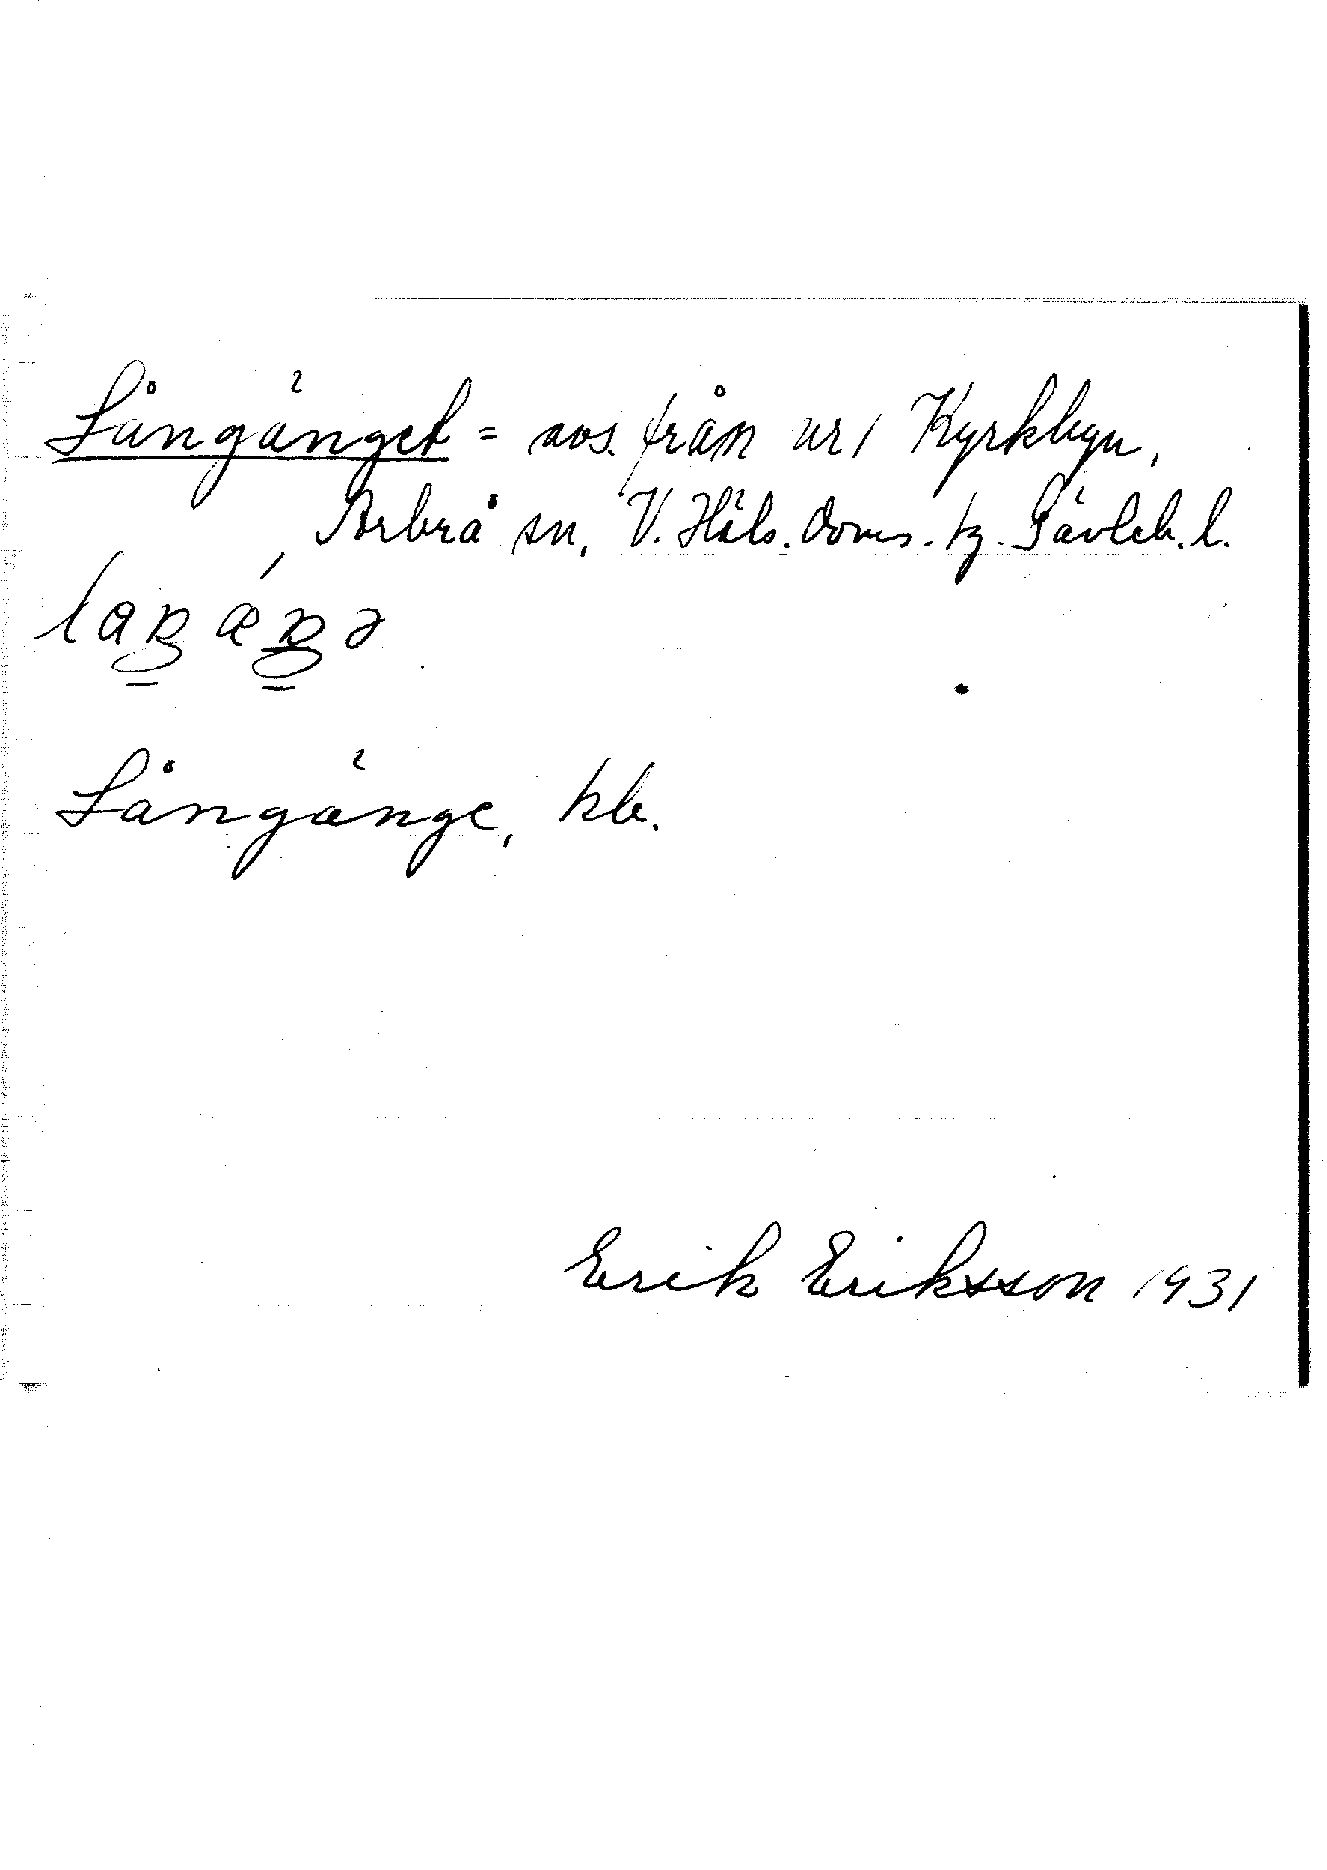 Långänget = avs. från nr 1 Kyrkbyn,
Arbrå sn, V. Häls. doms. tg. Gävleb. l.
Långänge, kb.
Erik Eriksson 1931